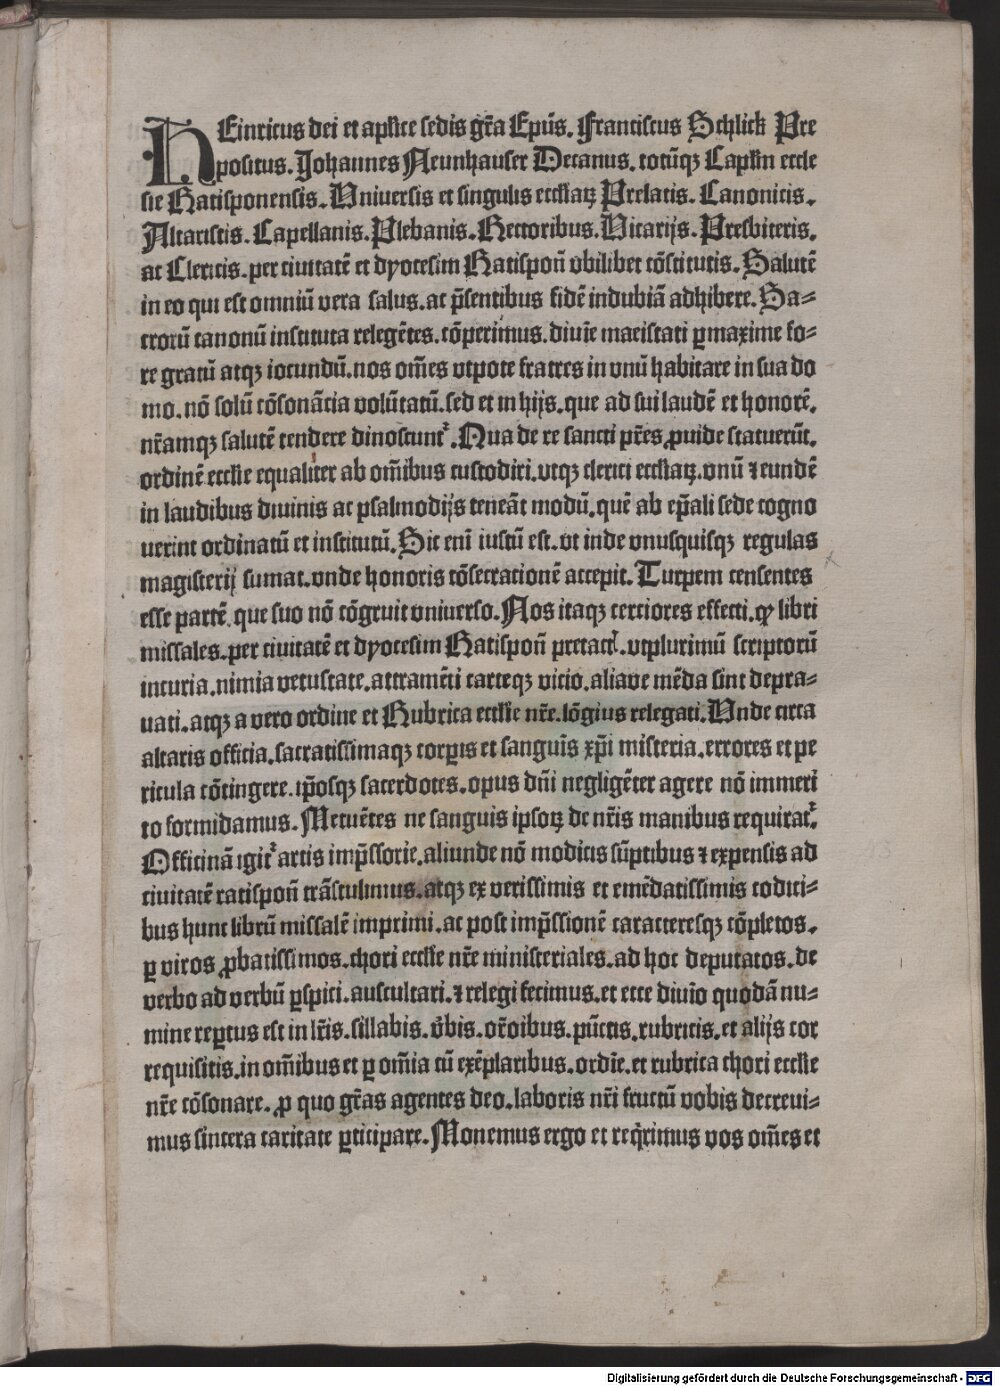 HEinricus dei et aplice sedis gr̃a Ep̃us. Franciscus Schlick Pre
positus. Johannes Neunhauser Decanus. totũqꝫ Caplm̃ eccle
sie Ratisponensis. Vniuersis et singulis eccliaꝝ Prelatis. Canonicis.
Altaristis. Capellanis. Plebanis. Rectoribus. Vicarijs. Presbiteris.
ac Clericis. per ciuitatẽ et dyocesim Ratispoñ vbilibet cõstitutis. Salutẽ
in eo qui est omniũ vera salus. ac p̃sentibus fidẽ indubiã adhibere. Sa-
crorũ canonũ instituta relegẽtes. cõperimus. diuĩe maeistati ꝑmaxime fo-
re gratũ atqꝫ iocundũ. nos om̃es vtpote fratres in vnũ habitare in sua do
mo. nõ solũ cõsonãcia volũtatũ. sed et in hijs. que ad sui laudẽ et honorẽ.
nr̃amqꝫ salutẽ tendere dinoscunt᷑. Qua de re sancti pr̃es ꝓuide statuerũt.
ordinẽ ecclie equaliter ab om̃ibus custodiri. vtqꝫ clerici eccliaꝝ. vnũ ⁊ eundẽ
in laudibus diuinis ac psalmodijs teneãt modũ. quẽ ab ep̃ali sede cogno
uerint ordinatũ et institutũ. Sic enĩ iustũ est. vt inde vnusquisqꝫ regulas
magisterij sumat. vnde honoris cõsecrationẽ accepit. Turpem censentes
esse partẽ. que suo nõ cõgruit vniuerso. Nos itaqꝫ cerciores effecti. ꝙ libri
missales. per ciuitatẽ et dyocesim Ratispoñ pretact᷑. vtplurimũ scriptorũ
incuria. nimia vetustate. attramẽti carteqꝫ vicio. aliaue mẽda sint depra-
uati. atqꝫ a vero ordine et Rubrica ecclie nr̃e. lõgius relegati. Vnde circa
altaris officia. sacratissimaqꝫ corꝑis et sanguĩs xp̃i misteria. errores et pe
ricula cõtingere. ip̃osqꝫ sacerdotes. opus dñi negligẽter agere nõ immeri
to formidamus. Metuẽtes ne sanguis ipsoꝝ de nr̃is manibus requirat᷑.
Officinã igit᷑ artis imp̃ssorie. aliunde nõ modicis sũptibus ⁊ expensis ad
ciuitatẽ ratispoñ trãstulimus. atqꝫ ex verissimis et emẽdatissimis codici-
bus hunc librũ missalẽ imprimi. ac post imp̃ssionẽ caracteresqꝫ cõpletos.
ꝑ viros ꝓbatissimos. chori ecclie nr̃e ministeriales. ad hoc deputatos. de
verbo ad verbũ ꝑspici. auscultari. ⁊ relegi fecimus. et ecce diuĩo quodã nu-
mine reꝑtus est in lr̃is. sillabis. v̾bis. or̃oibus. pũctis. rubricis. et alijs cor
requisitis. in om̃ibus et ꝑ om̃ia cũ exẽplaribus. ordĩe. et rubrica chori ecclie
nr̃e cõsonare. ꝓ quo gr̃as agentes deo. laboris nr̃i fructũ vobis decreui-
mus sincera caritate ꝑticipare. Monemus ergo et req̃rimus vos om̃es et
Digitalisierung gefördert durch die Deutsche Forschungsgemeinschaft - DFG